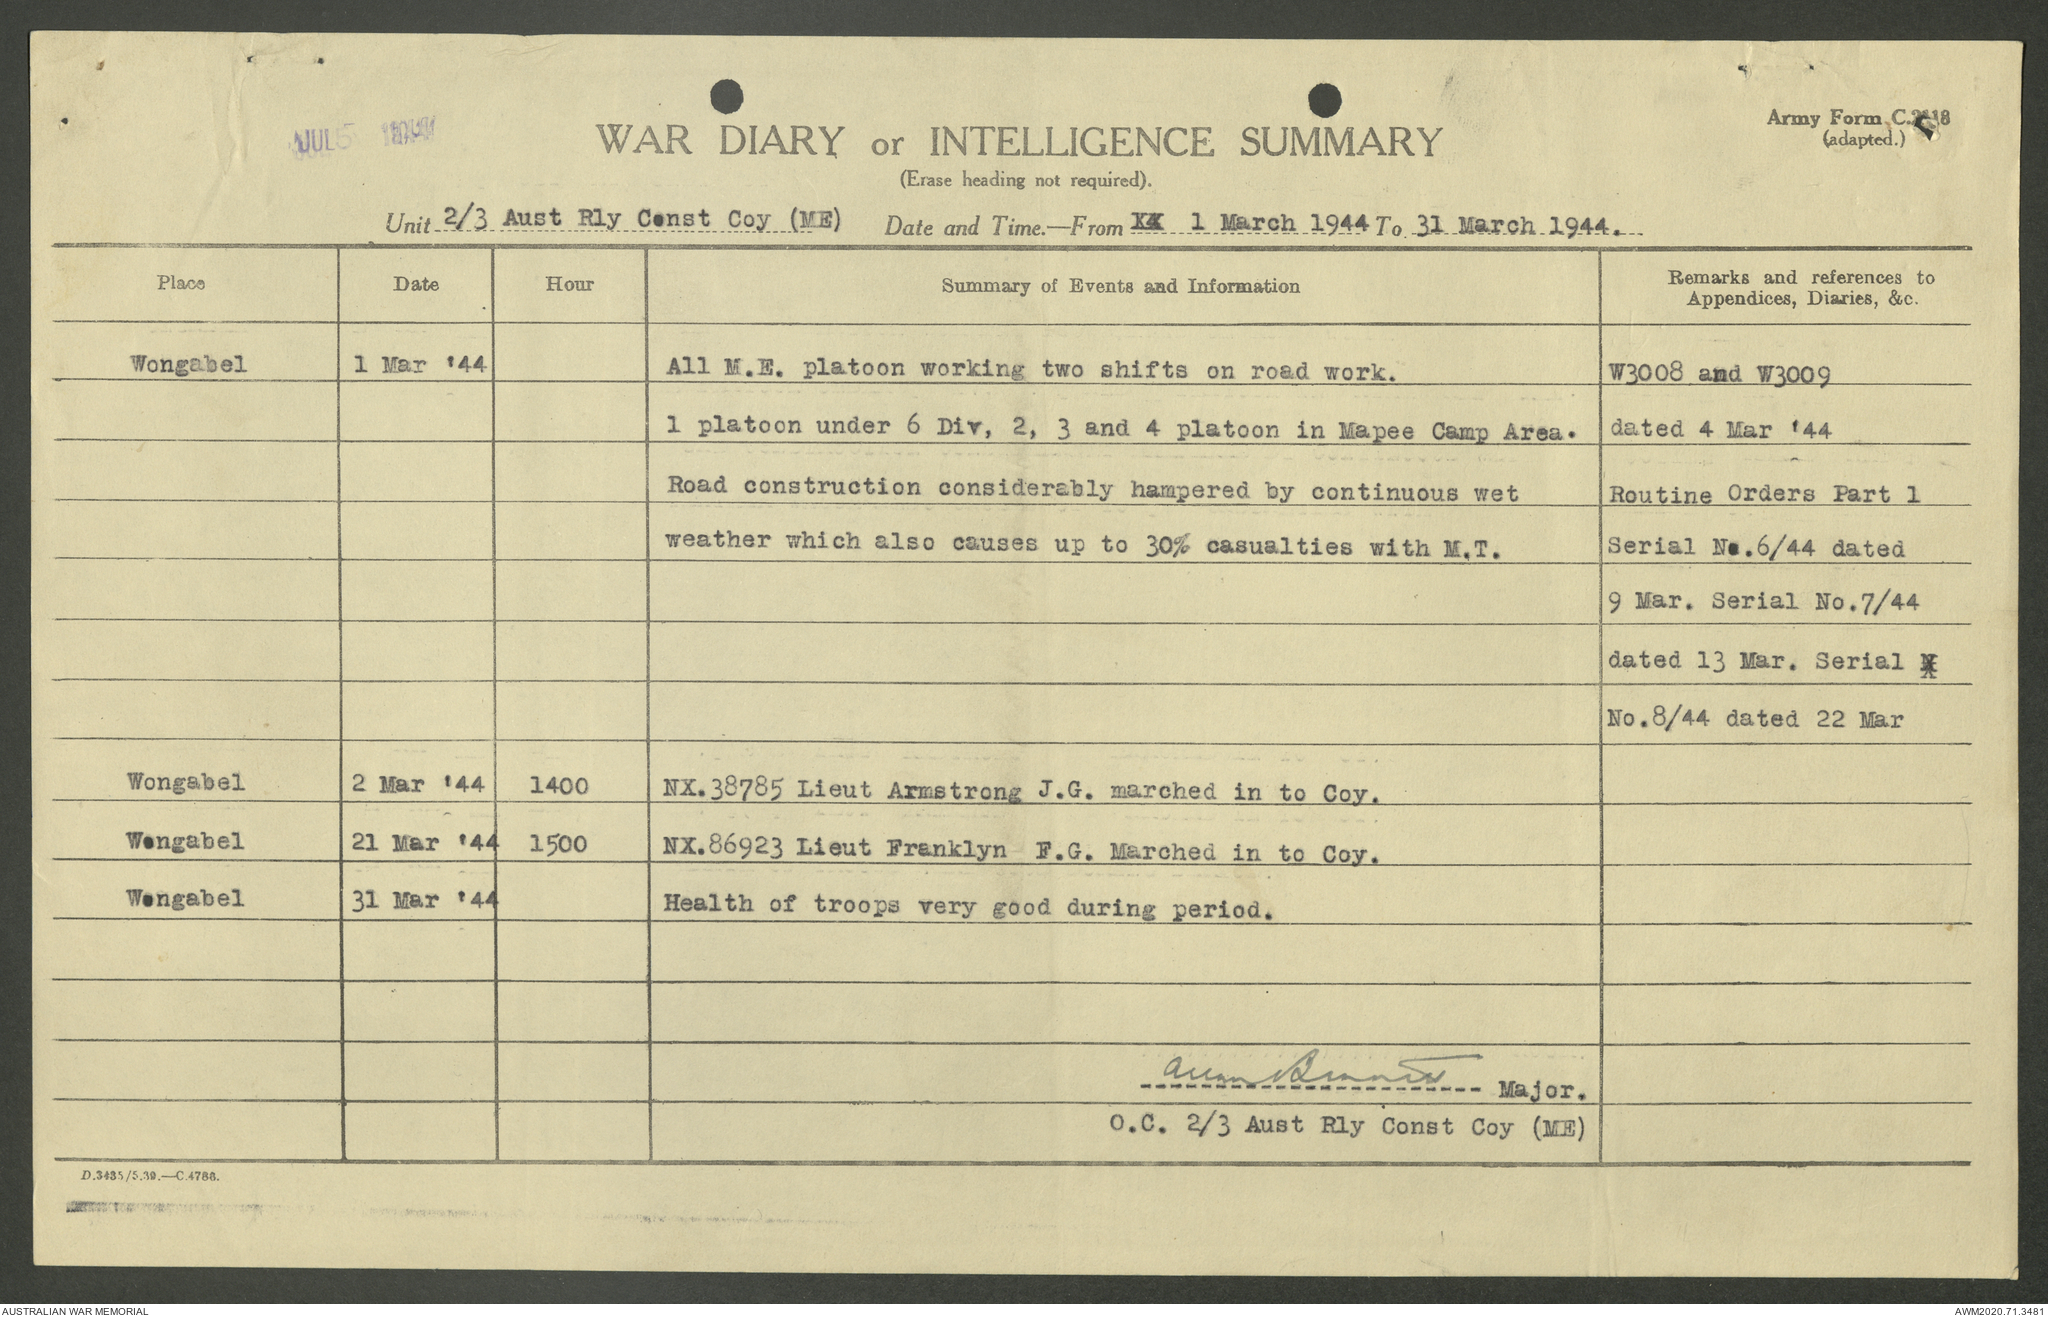 JUL 5
WAR DIARY or INTELLIGENCE SUMMARY
Army Form C.2118
(adapted.)
(Erase heading not required).
Unit 2/3 Aust Rly Const Coy (ME) Date and Time.—From 1 March 1944 To 31 March 1944.
Place Date Hour Summary of Events and Information Remarks and references to
Appendices, Diaries, &c.
Wongabel 1 Mar '44 All M.E. platoon working two shifts on road work. W3008 and W3009
1 platoon under 6 Div, 2, 3 and 4 platoon in Mapee Camp Area. dated 4 Mar '44
Road construction considerably hampered by continuous wet Routine Orders Part 1
weather which also causes up to 30% casualties with M.T. Serial No.6/44 dated
9 Mar. Serial No.7/44
dated 13 Mar. Serial
No.8/44 dated 22 Mar
Wongabel 2 Mar '44 1400 NX.38785 Lieut Armstrong J.G. marched in to Coy.
Wongabel 21 Mar '44 1500 NX.86923 Lieut Franklyn F.G. Marched in to Coy.
Wongabel 31 Mar '44 Health of troops very good during period.
Major.
O.C. 2/3 Aust Rly Const Coy (ME)
D.3435/5.39.—C.4788.
AUSTRALIAN WAR MEMORIAL
AWM2020.71.3481